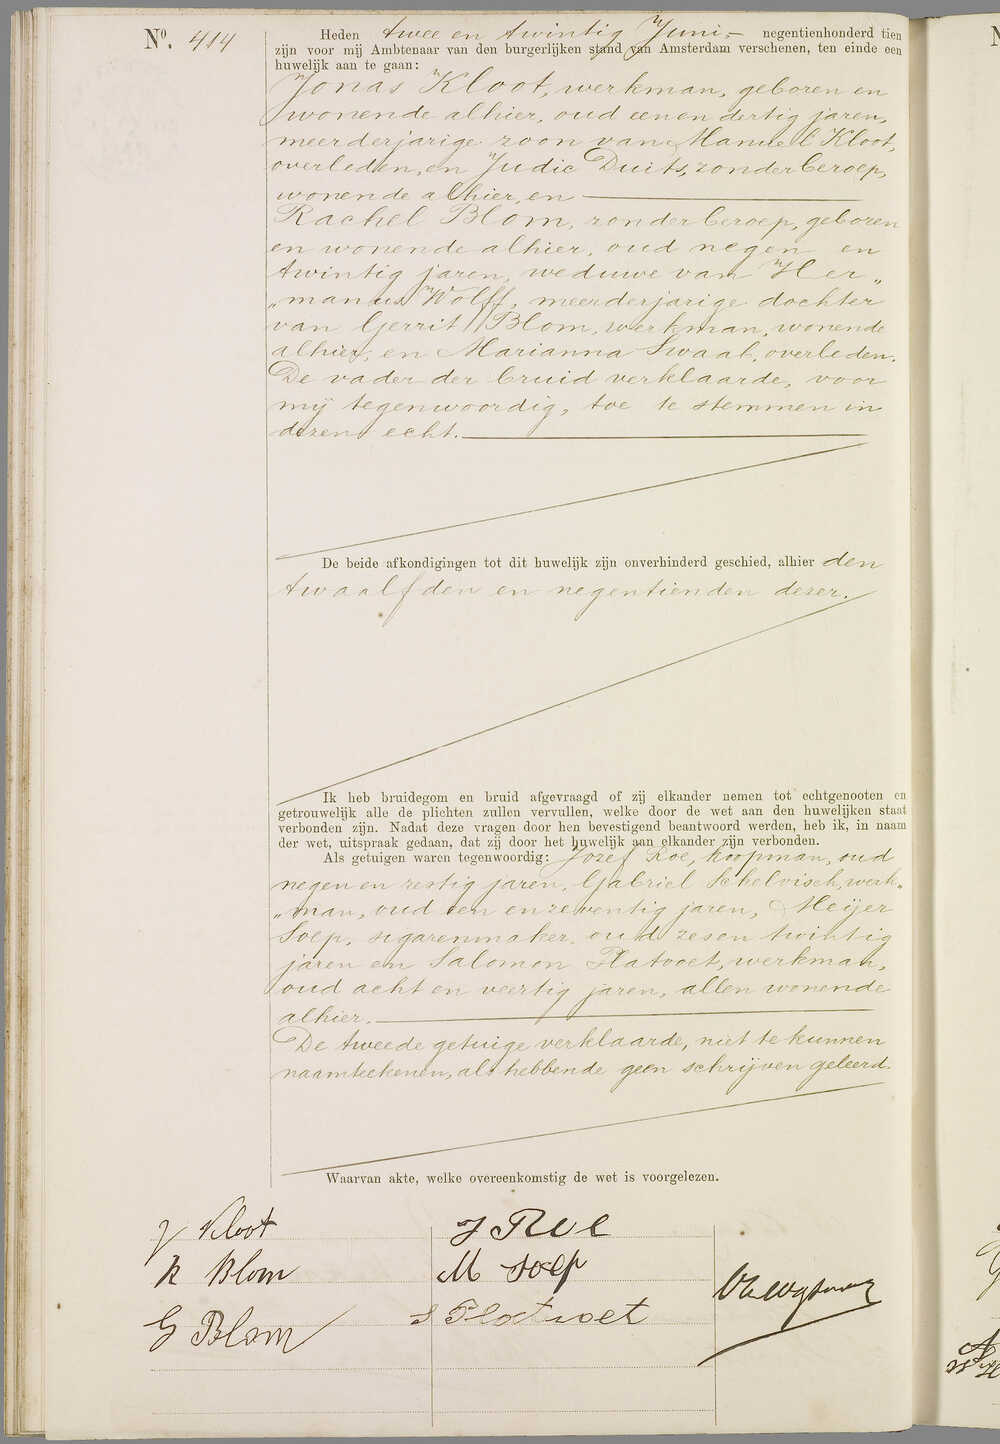 Nº. 414
Heden twee en twintig Juni,- negentienhonderd tien
zijn voor mij Ambtenaar van den burgerlijken stand van Amsterdam verschenen, ten einde een
huwelijk aan te gaan:
Jonas Kloot, werkman, geboren en
wonende alhier, oud een en dertig jaren,
meerderjarige zoon van Manuel Kloot,
overleden, en Judic Duits, zonder beroep,
wonende alhier, en
Rachel Blom, zonder beroep, geboren
en wonende alhier, oud negen en
twintig jaren, weduwe van Her„
„manus Wolff, meerderjarige dochter
van Gerrit Blom, werkman, wonende
alhier, en Marianna Swaab, overleden.
De vader der bruid verklaarde, voor
mij tegenwoordig, toe te stemmen in
dezen echt.
De beide afkondigingen tot dit huwelijk zijn onverhinderd geschied, alhier den
twaalfden en negentienden dezer.
Ik heb bruidegom en bruid afgevraagd of zij elkander nemen tot echtgenooten en
getrouwelijk alle de plichten zullen vervullen, welke door de wet aan den huwelijken staat
verbonden zijn. Nadat deze vragen door hen bevestigend beantwoord werden, heb ik, in naam
der wet, uitspraak gedaan, dat zij door het huwelijk aan elkander zijn verbonden.
Als getuigen waren tegenwoordig: Jozef Roe, koopman, oud
negen en zestig jaren, Gabriel Schelvisch, werk„
„man, oud een en zeventig jaren, Meijer
Soep, sigarenmaker, oud zes en twintig
jaren en Salomon Platvoet, werkman,
oud acht en veertig jaren, allen wonende
alhier.
De tweede getuige verklaarde, niet te kunnen
naamteekenen, als hebbende geen schrijven geleerd.
Waarvan akte, welke overeenkomstig de wet is voorgelezen.
J Kloot
R Blom
G Blom
J Roe
M Soep
S Platvoet